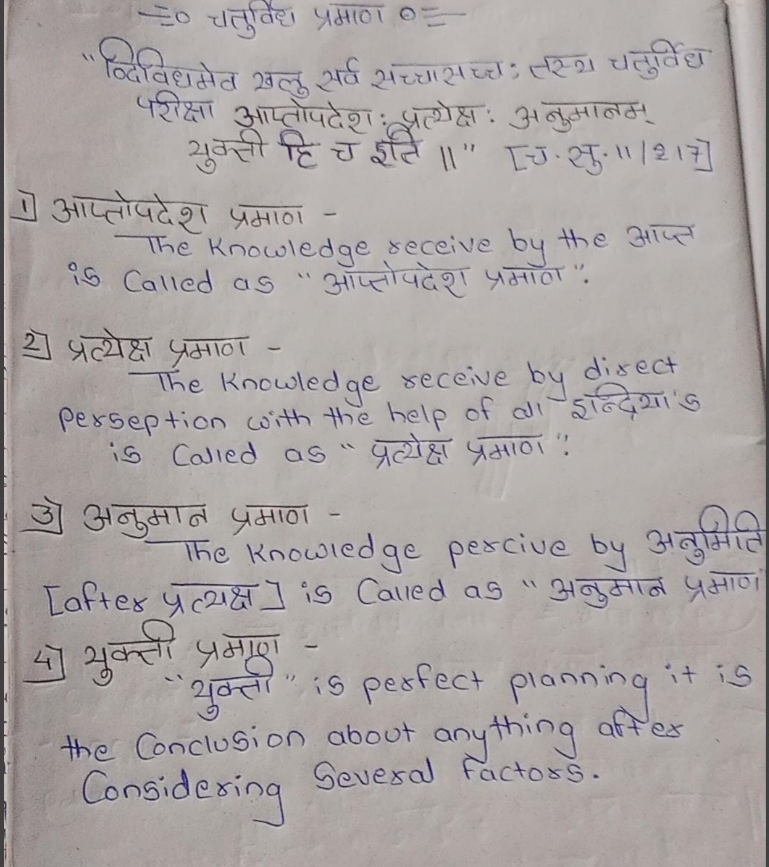 चतुर्विध प्रमाण
"द्विविधमेव खलु सर्व सच्चासच्च: तस्य चतुर्विध
परीक्षा आप्तोपदेश: प्रत्येक्ष: अनुमानम्
युक्ती हि च इति ॥" [च.सु.11/217]
1] आप्तोपदेश प्रमाण -
The Knowledge receive by the आप्त
is Called as "आप्तोपदेश प्रमाण".
2] प्रत्येक्ष प्रमाण -
The Knowledge receive by direct
perseption with the help of all इन्द्रिया's
is Called as "प्रत्येक्ष प्रमाण".
3] अनुमान प्रमाण -
The Knowledge percive by अनुमिति
[after प्रत्यक्ष] is Called as "अनुमान प्रमाण
4] युक्ती प्रमाण -
"युक्ती" is perfect planning it is
the Conclusion about anything after
Considering Several factors.